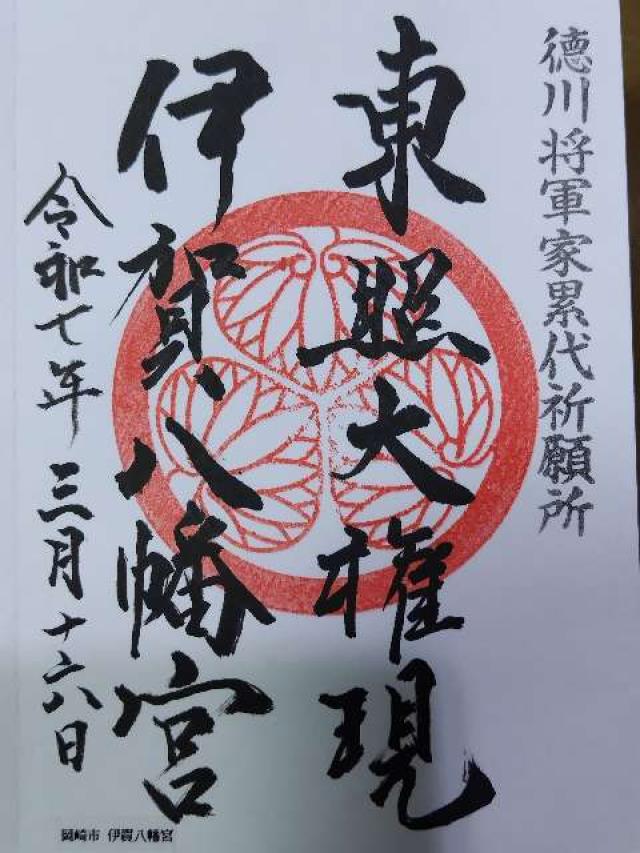 德川将軍家累代祈願所
東照大権現
伊賀八幡宮
令和七年三月十六日
岡崎市 伊賀八幡宮